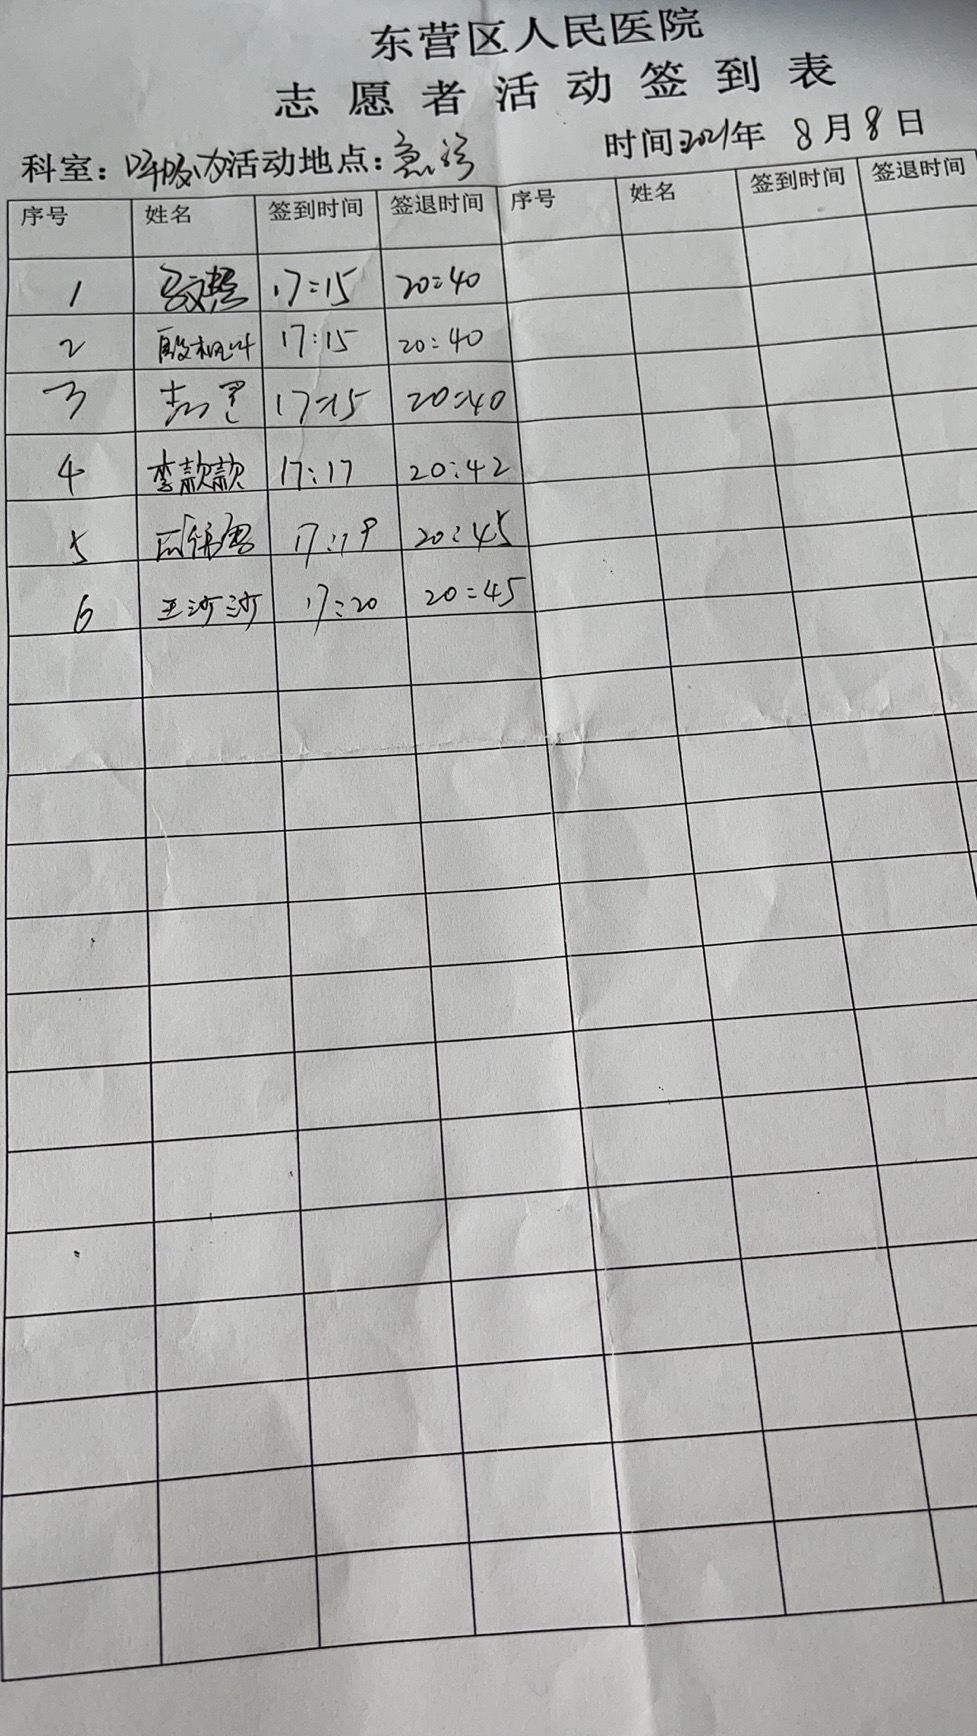 东营区人民医院
志愿者活动签到表
科室：呼吸内 活动地点：急诊 时间：2021年 8月8日
序号 姓名 签到时间 签退时间 序号 姓名 签到时间 签退时间
1 17:15 20:40
2 17:15 20:40
3 17:15 20:40
4 李款款 17:17 20:42
5 17:19 20:45
6 王沙沙 17:20 20:45